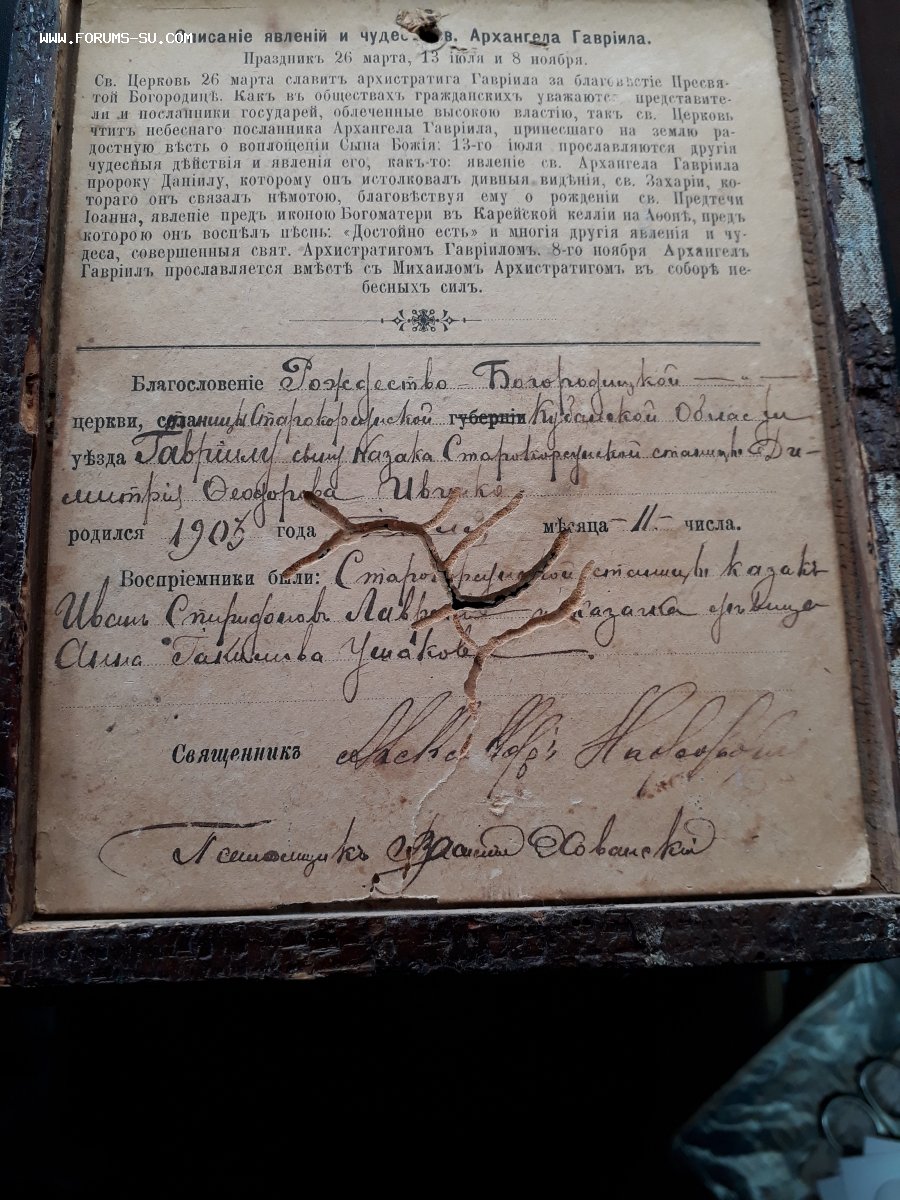 www.forums-su.com
Описаніе явленій и чудесъ св. Архангела Гавріила.
Праздник 26 марта, 13 іюля и 8 ноября.
Св. Церковь 26 марта славитъ архистратига Гавріила за благовѣстіе Пресвя-
той Богородицѣ. Какъ въ обществахъ гражданскихъ уважаются представите-
ли и посланники государей, облеченные высокою властію, такъ св. Церковь
чтитъ небеснаго посланника Архангела Гавріила, принесшаго на землю ра-
достную вѣсть о воплощеніи Сына Божія: 13-го іюля прославляются другія
чудесныя дѣйствія и явленія его, какъ-то: явленіе св. Архангела Гавріила
пророку Даніилу, которому онъ истолковалъ дивныя видѣнія, св. Захаріи, ко-
тораго онъ связалъ нѣмотою, благовѣствуя ему о рожденіи св. Предтечи
Іоанна, явленіе предъ иконою Богоматери въ Карейской келліи на Аѳонѣ, предъ
которою онъ воспѣлъ пѣснь: «Достойно есть» и многія другія явленія и чу-
деса, совершенныя свят. Архистратигомъ Гавріиломъ. 8-го ноября Архангелъ
Гавріилъ прославляется вмѣстѣ съ Михаиломъ Архистратигомъ въ соборѣ не-
бесныхъ силъ.
Благословеніе Рождество-Богородицкой
церкви, станицы Старокорсунской губерніи Кубанской Области
уѣзда Гавріилу сыну Казака Старокорсунской станицы Ди-
митрія Ѳеодорова Ивченко
родился 1903 года мѣсяца -11- числа.
Воспріемники были: Старокорсунской станицы казакъ
Иванъ Спиридоновъ и казачка дѣвица
Анна Ушакова
Священникъ
Псаломщикъ Василій Хованскій